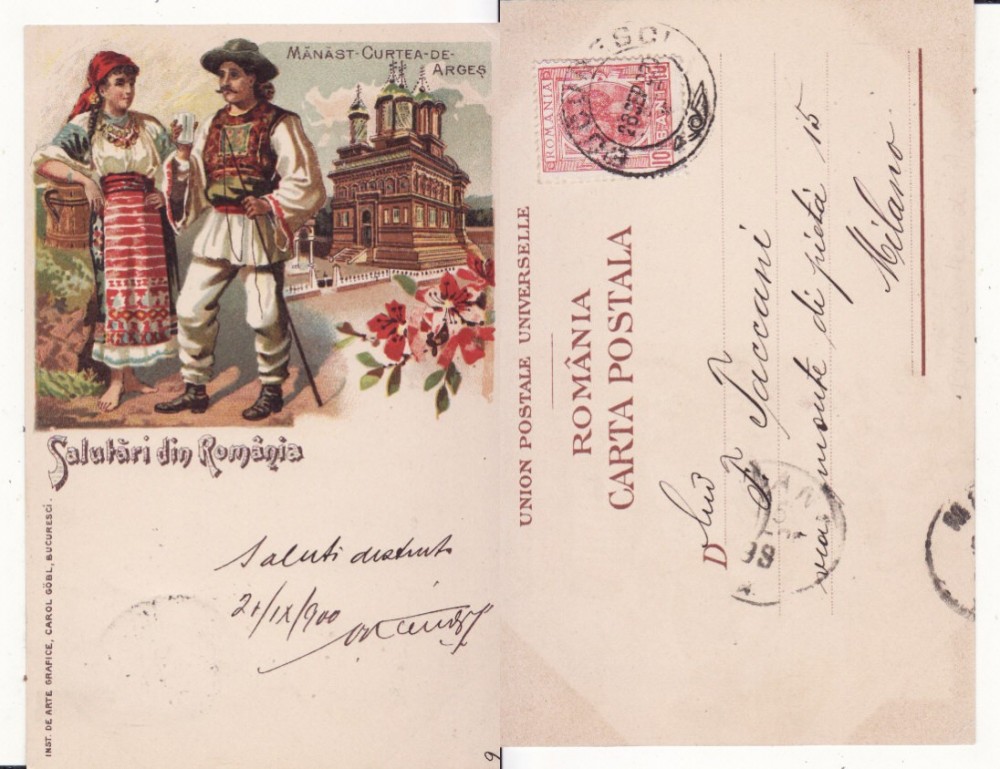 MĂNĂST-CURTEA-DE-
ARGEȘ
Salutări din România
INST. DE ARTE GRAFICE, CAROL GÖBL, BUCURESCI.
Saluti distinti
/IX/900
6
ROMANIA
10 BANI
28 SEP
UNION POSTALE UNIVERSELLE
ROMÂNIA
CARTA POSTALA
D lui F. Taccani
via monte di pietà 15
Milano